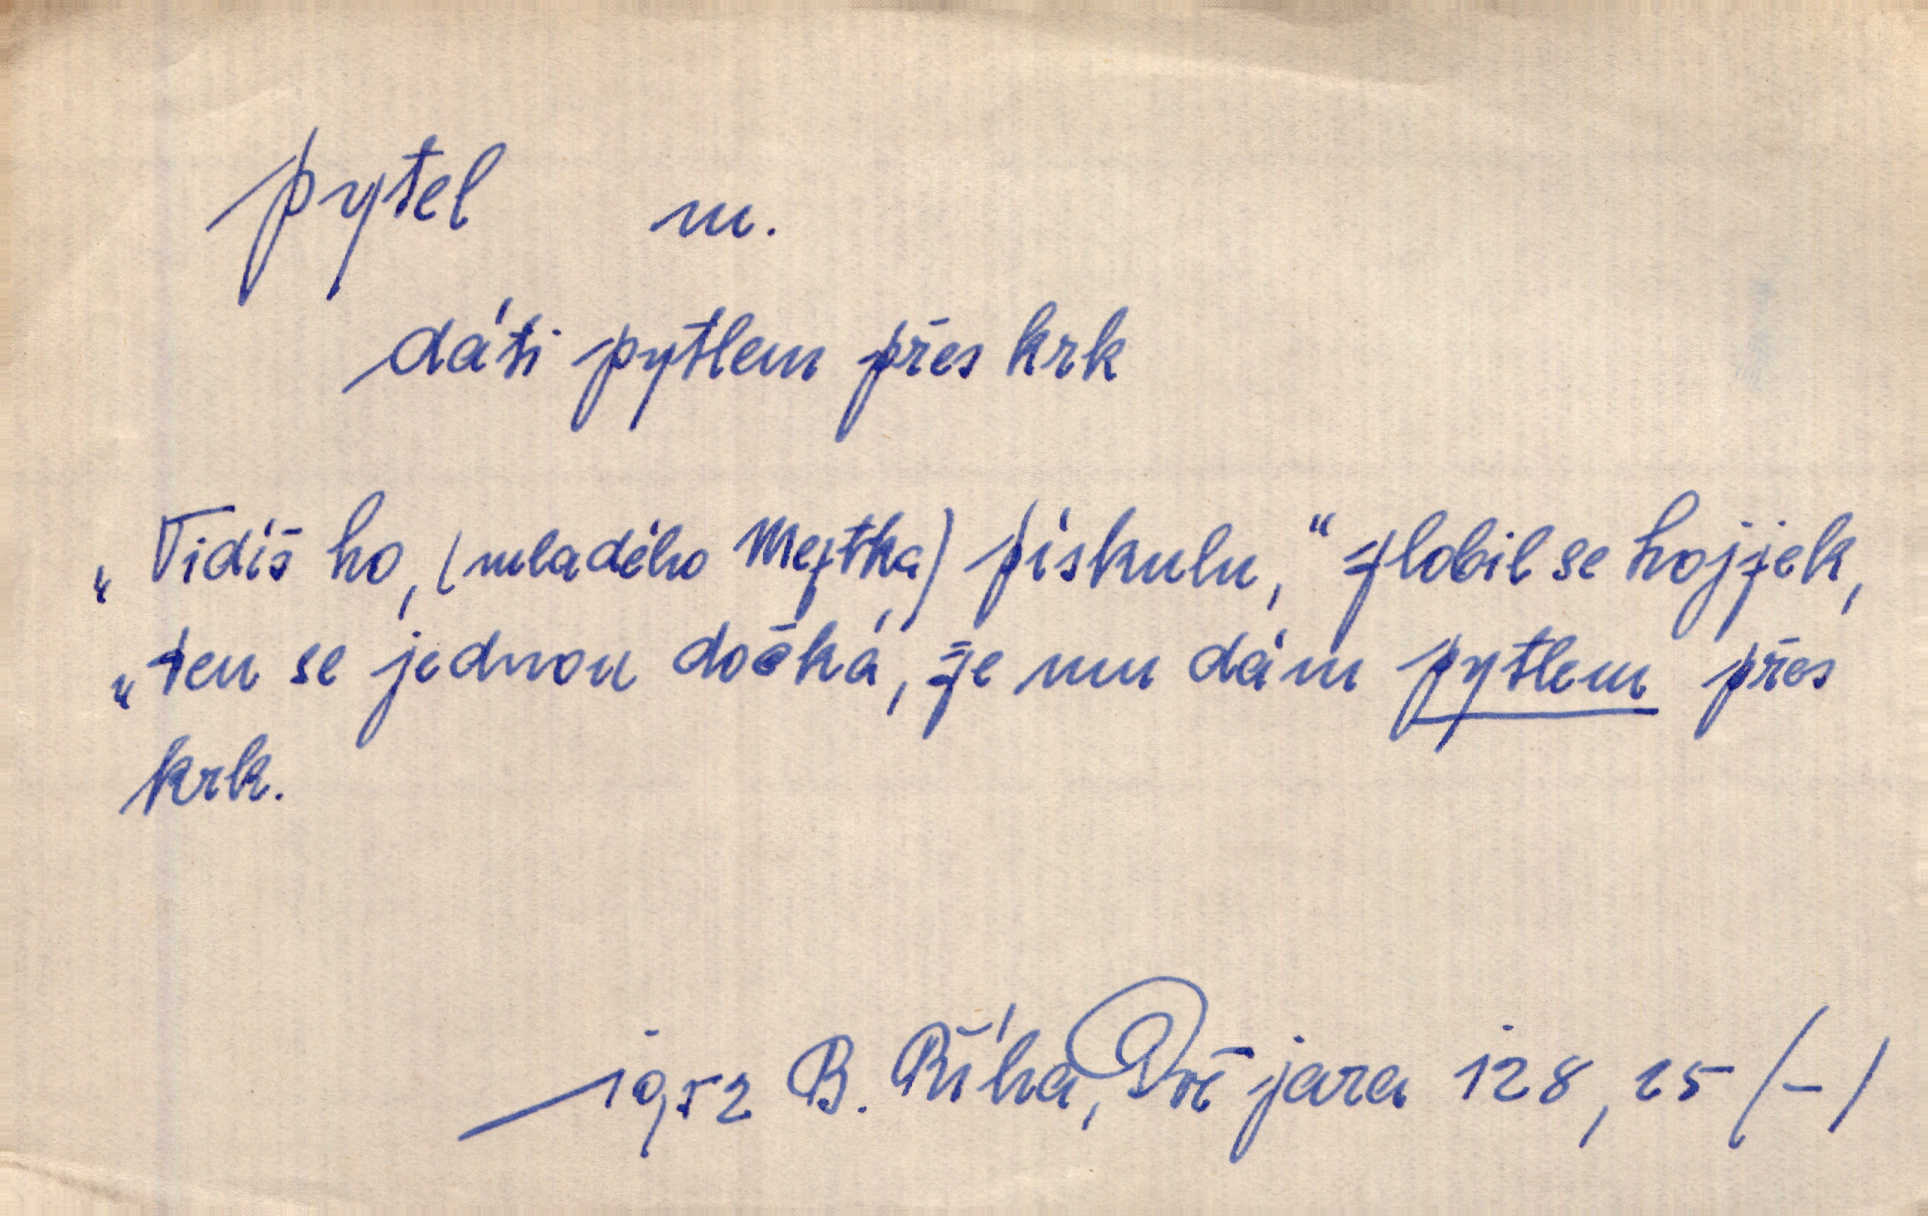 pytel m.
dáti pytlem přes krk
„Vidíš ho, (mladého Mejtka) pískulu,“ zlobil se hojzek,
„ten se jednou dočká, že mu dám pytlem přes
krk.
1952 B. Říha, Dvě jara 128, 25 (–)